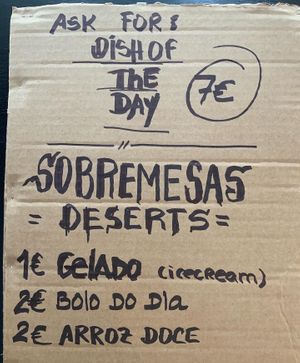 ASK FOR:
DISH OF
THE
DAY 7€
SOBREMESAS
= DESERTS =
1€ GELADO (icecream)
2€ BOLO DO DIA
2€ ARROZ DOCE